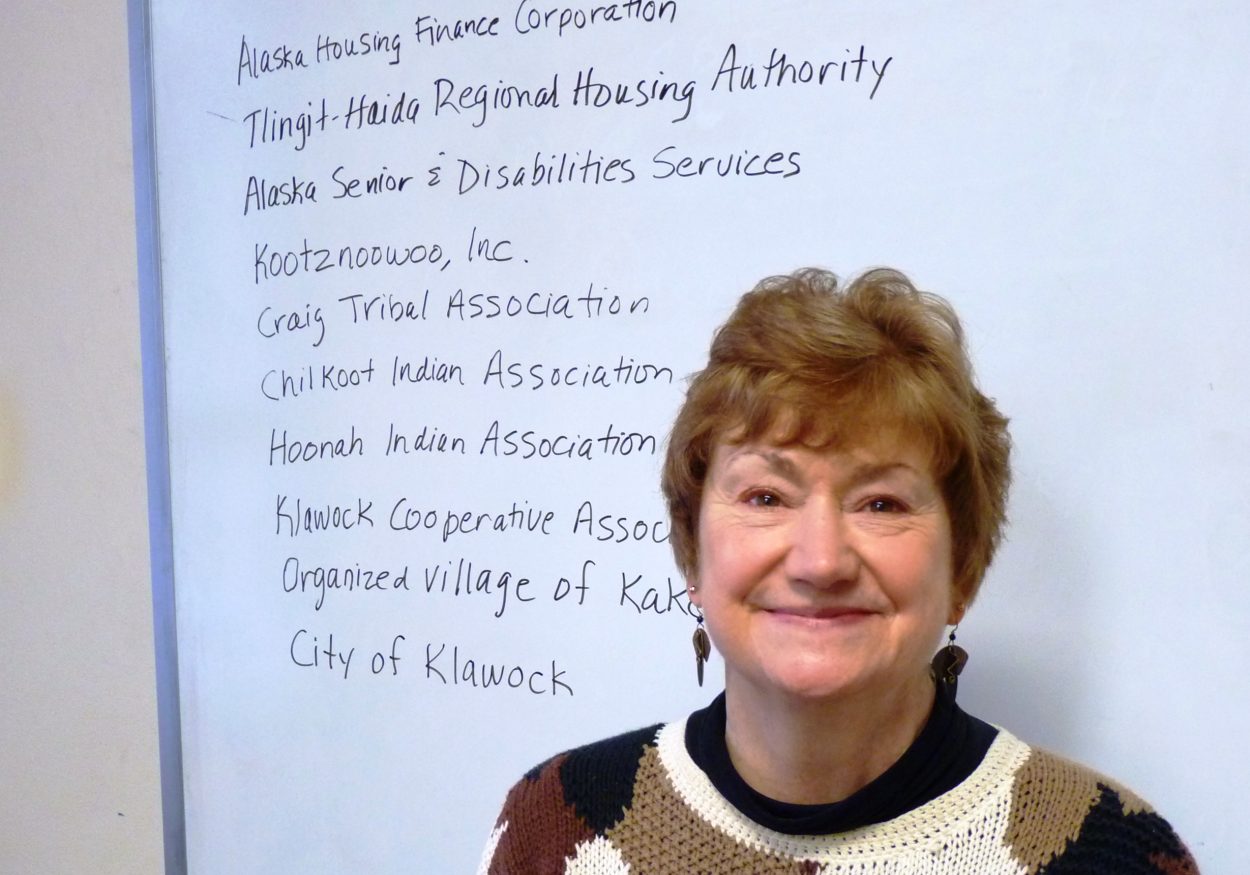 Alaska Housing Finance Corporation
Tlingit-Haida Regional Housing Authority
Alaska Senior & Disabilities Services
Kootznoowoo, Inc.
Craig Tribal Association
Chilkoot Indian Association
Hoonah Indian Association
Klawock Cooperative Assoc
Organized Village of Kake
City of Klawock